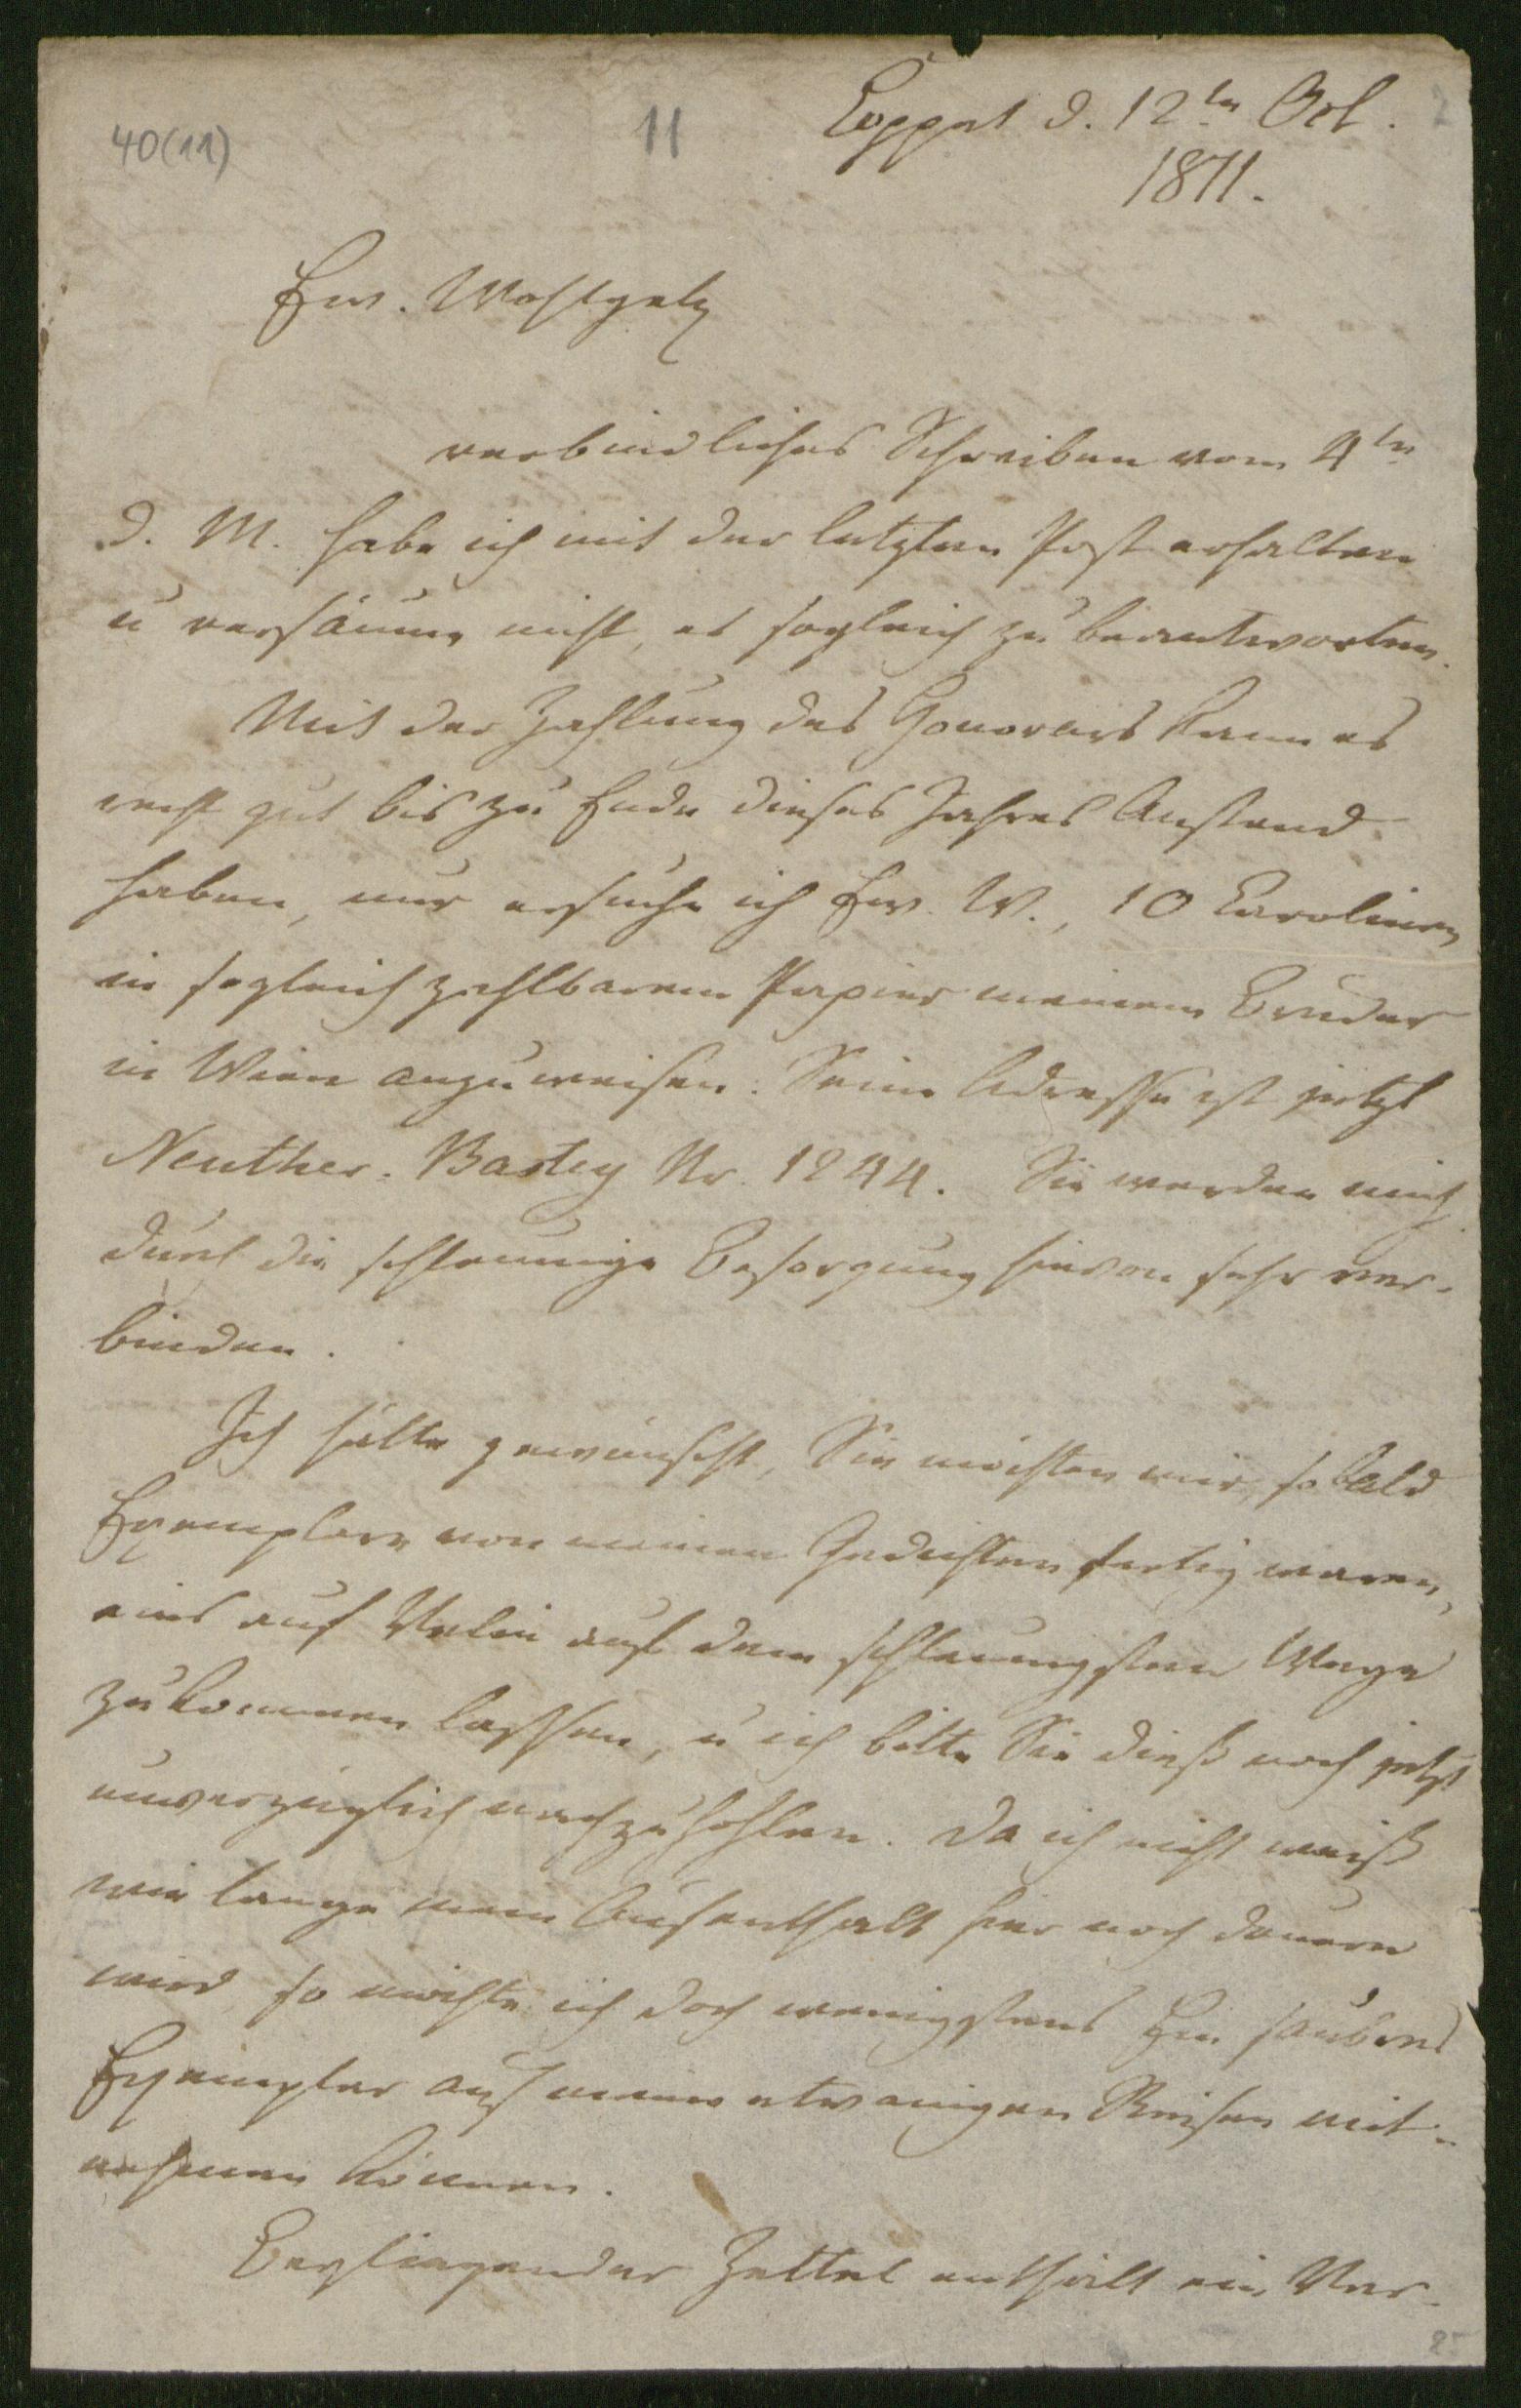 40(11)
11
Coppet d. 12ten Oct.
1811.
Ew. Wohlgeb
verbindliches Schreiben vom 4ten
d. M. habe ich mit der letzten Post erhalten
u versäume nicht, es sogleich zu beantworten.
Mit der Zahlung des Honorars kann es
recht gut bis zu Ende dieses Jahres Anstand
haben, nur ersuche ich Ew. W., 10 Carolinen
in sogleich zahlbarem Papier meinem Bruder
in Wien anzuweisen. Seine Adresse ist jetzt
Neuther. Bastey Nr. 1244. Sie werden mich
durch die schleunige Besorgung hievon sehr ver-
binden.
Ich hätte gewünscht, Sie möchten mir, so bald
Exemplare von meinen Gedichten fertig waren,
eins auf Velin auf dem schleunigsten Wege
zukommen lassen, u ich bitte Sie dieß noch jetzt
unverzüglich nachzuhohlen. Da ich nicht weiß
wie lange mein Aufenthalt hier noch dauern
wird, so möchte ich doch wenigstens Ein saubres
Exemplar auf meine etwanigen Reisen mit-
nehmen können.
Beyliegender Zettel enthält ein Ver-